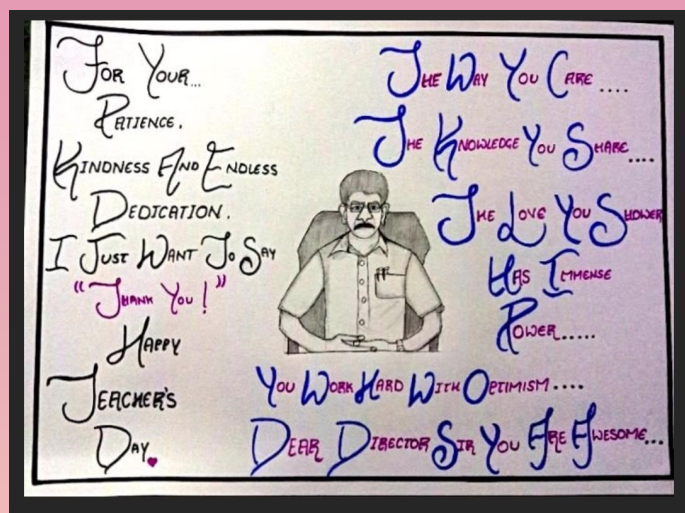 For Your...
Patience.
Kindness And Endless
Dedication.
I Just Want To Say
"Thank You!"
Happy
Teacher's
Day
The Way You Care ....
The Knowledge You Share....
The Love You Shower
Has Immense
Power.....
You Work Hard With Optimism ....
Dear Director Sir You Are Awesome...